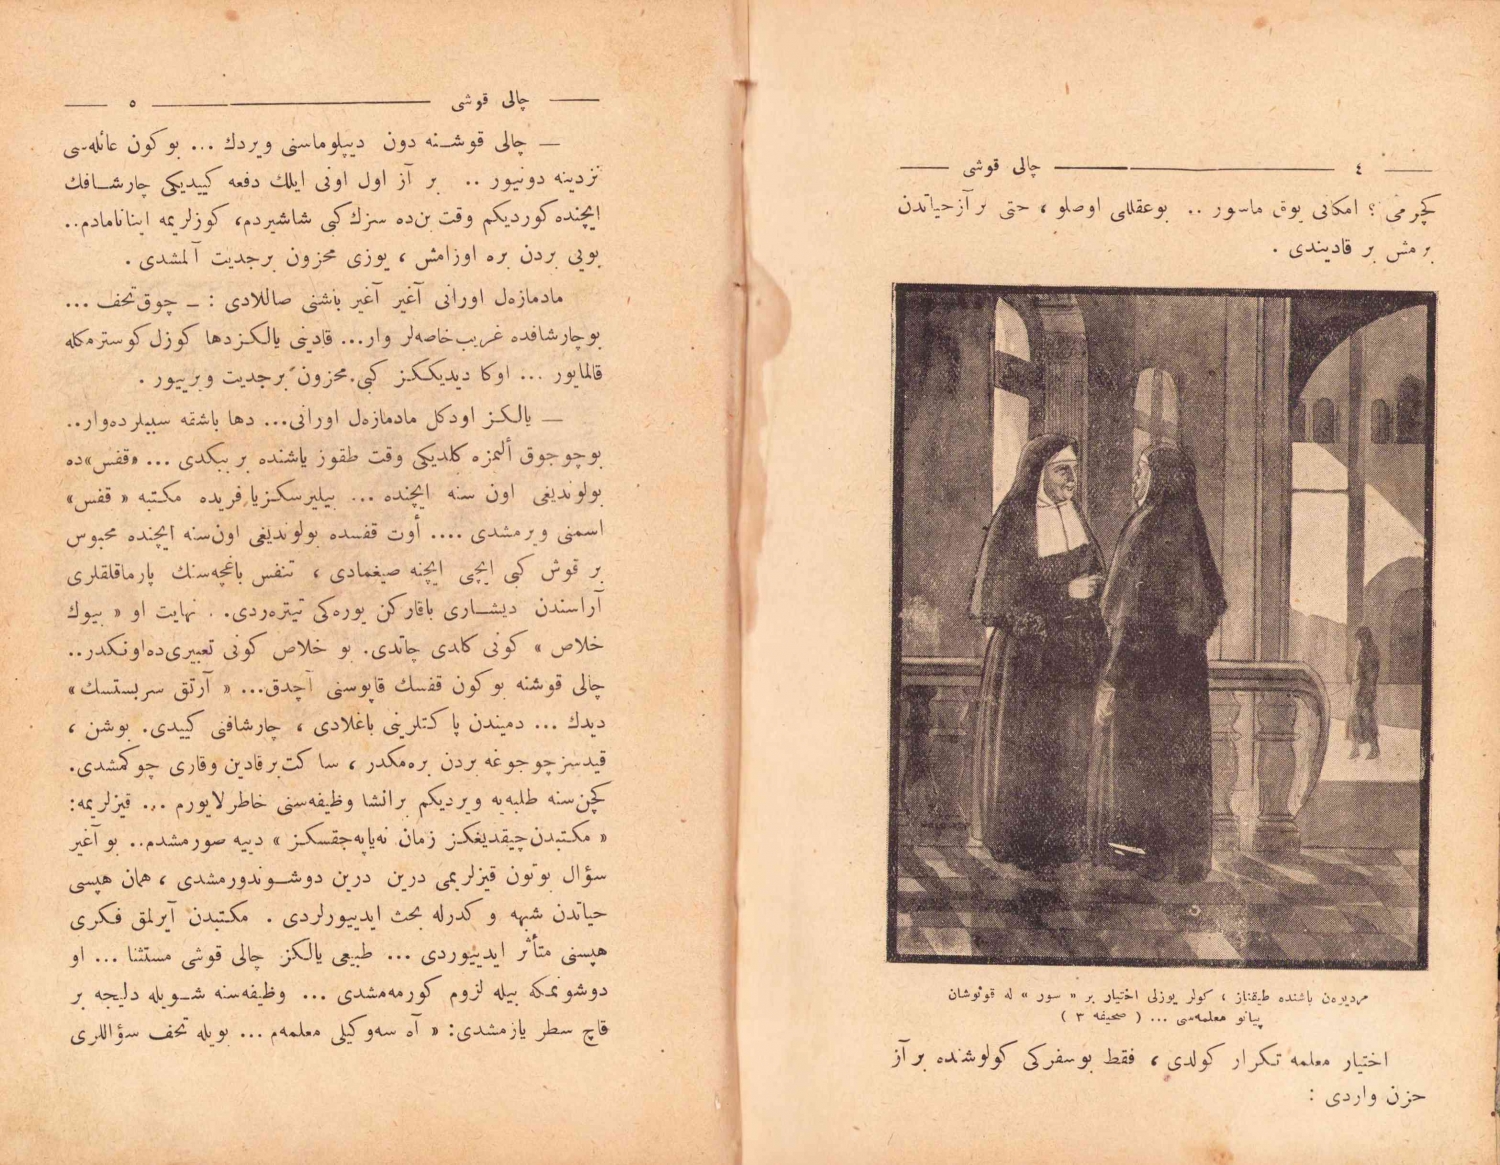 ٤ چالی قوشی
كچرمی ؟ امكانی یوق ماسور .. بوعقللی اوصلو ، حتی برآز حیاتدن
بزمش بر قادیندی .
مردیوەن باشنده طیقناز ، كولر یوزلی اختیار بر « سور » له قونوشان
پیانو معلمه‌سی ... ( صحیفه ٣ )
اختیار معلمه تكرار كولدی ، فقط بوسفركی كولوشنده برآز
حزن واردی :
چالی قوشی ٥
— چالی قوشنه دون دیپلوماسنی ویردك ... بوكون عائله‌سی
نزدینه دونیور .. بر آز اول اونی ایلك دفعه كییدیكی چارشافك
ایچنده كوردیكم وقت بن‌ده سزك كبی شاشیردم، كوزلریمه اینانامادم..
بویی بردن بره اوزامش ، یوزی محزون برجدیت آلمشدی .
مادمازه‌ل اورانی آغیر آغیر باشنی صاللادی : — چوق تحف ...
بوچارشافده غریب خاصه‌لر وار... قادینی یالكزدها كوزل كوسترمكله
قالمایور ... اوكا دیدیككز كبی محزون برجدیت ویرییور .
— یالكز اودكل مادمازه‌ل اورانی... دها باشقه سببلرده‌وار..
بوچوجوق ألمزه كلدیكی وقت طقوز یاشنده بر ببكدی ... «قفس»ده
بولوندیغی اون سنه ایچنده ... بیلیرسكزیا فریده مكتبه « قفس»
اسمنی ویرمشدی .... أوت قفسده بولوندیغی اون‌سنه ایچنده محبوس
بر قوش كبی ایچی ایچنه صیغمادی ، تنفس باغچه‌سنك پارماقلقلری
آراسندن دیشاری باقاركن یوره‌كی تیتره‌ردی. . نهایت او « بیوك
خلاص » كونی كلدی چاتدی. بو خلاص كونی تعبیری‌ده‌اونكدر..
چالی قوشنه بوكون قفسك قاپوسنی آچدق... « آرتق سربستسك»
دیدك ... دمیندن پاكتلرینی باغلادی ، چارشافنی كییدی. بوشن ،
قیدسزچوجوغه بردن بره‌مكدر ، ساكت‌برقادین وقاری چوكمشدی.
كچن‌سنه طلبه‌یه ویردیكم برانشا وظیفه‌سنی خاطرلایورم ... قیزلریمه:
« مكتبدن‌چیقدیغكز زمان نه‌یاپه‌جقسكز » دییه صورمشدم.. بوآغیر
سؤال بوتون قیزلریمی درین درین دوشوندورمشدی ، همان هپسی
حیاتدن شبهه و كدرله بحث ایدییورلردی . مكتبدن آیرلمق فكری
هپسنی متأثر ایدییوردی ... طبیعی یالكز چالی قوشی مستثنا ... او
دوشونمكه بیله لزوم كورمه‌مشدی ... وظیفه‌سنه شویله دلیجه بر
قاچ سطر یازمشدی: « آه سه‌وكیلی معلمه‌م ... بویله تحف سؤاللری